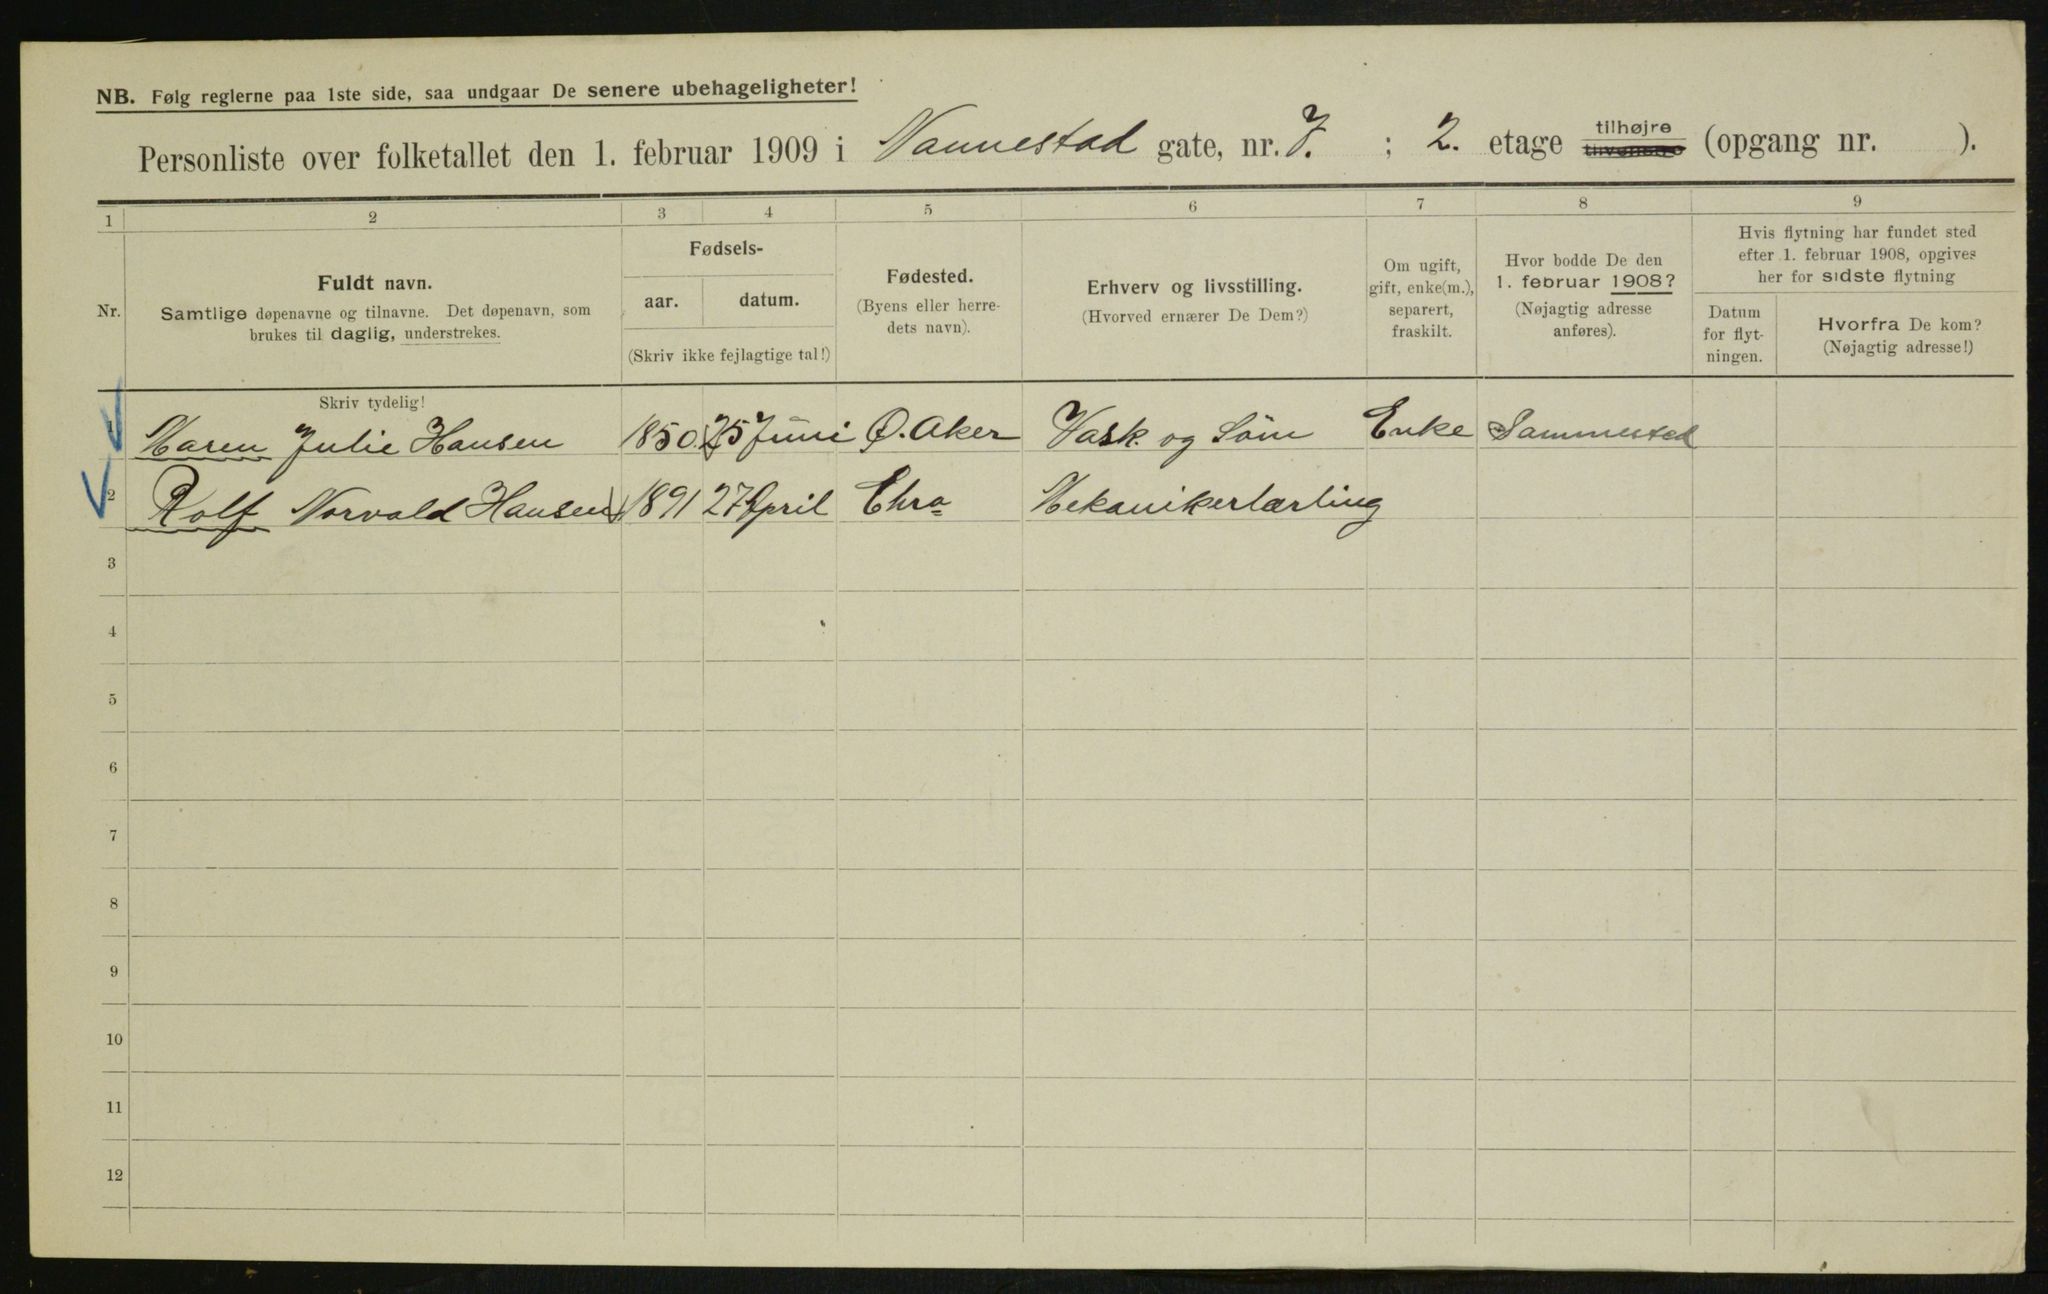 NB. Følg reglerne paa 1ste side, saa undgaar De senere ubehageligheter!
Personliste over folketallet den 1. februar 1909 i Nannestad gate, nr. 7. ; 2. etage tilhøjre tilvenstre (opgang nr. ).
1 2 3 4 5 6 7 8 9
Nr.
Fuldt navn.
Samtlige døpenavne og tilnavne. Det døpenavn, som
brukes til daglig, understrekes.
Fødsels-
aar. datum.
(Skriv ikke fejlagtige tal!)
Fødested.
(Byens eller herre-
dets navn).
Erhverv og livsstilling.
(Hvorved ernærer De Dem?)
Om ugift,
gift, enke(m.),
separert,
fraskilt.
Hvor bodde De den
1. februar 1908?
(Nøjagtig adresse
anføres).
Hvis flytning har fundet sted
efter 1. februar 1908, opgives
her for sidste flytning
Datum
for flyt-
ningen.
Hvorfra De kom?
(Nøjagtig adresse!)
Skriv tydelig!
1 Maren Julie Hansen 1850 25 Juni Ø. Aker Vask og Søm Enke Sammested
2 Rolf Norvald Hansen 1891 27 April Chra Mekanikerlærling
3
4
5
6
7
8
9
10
11
12